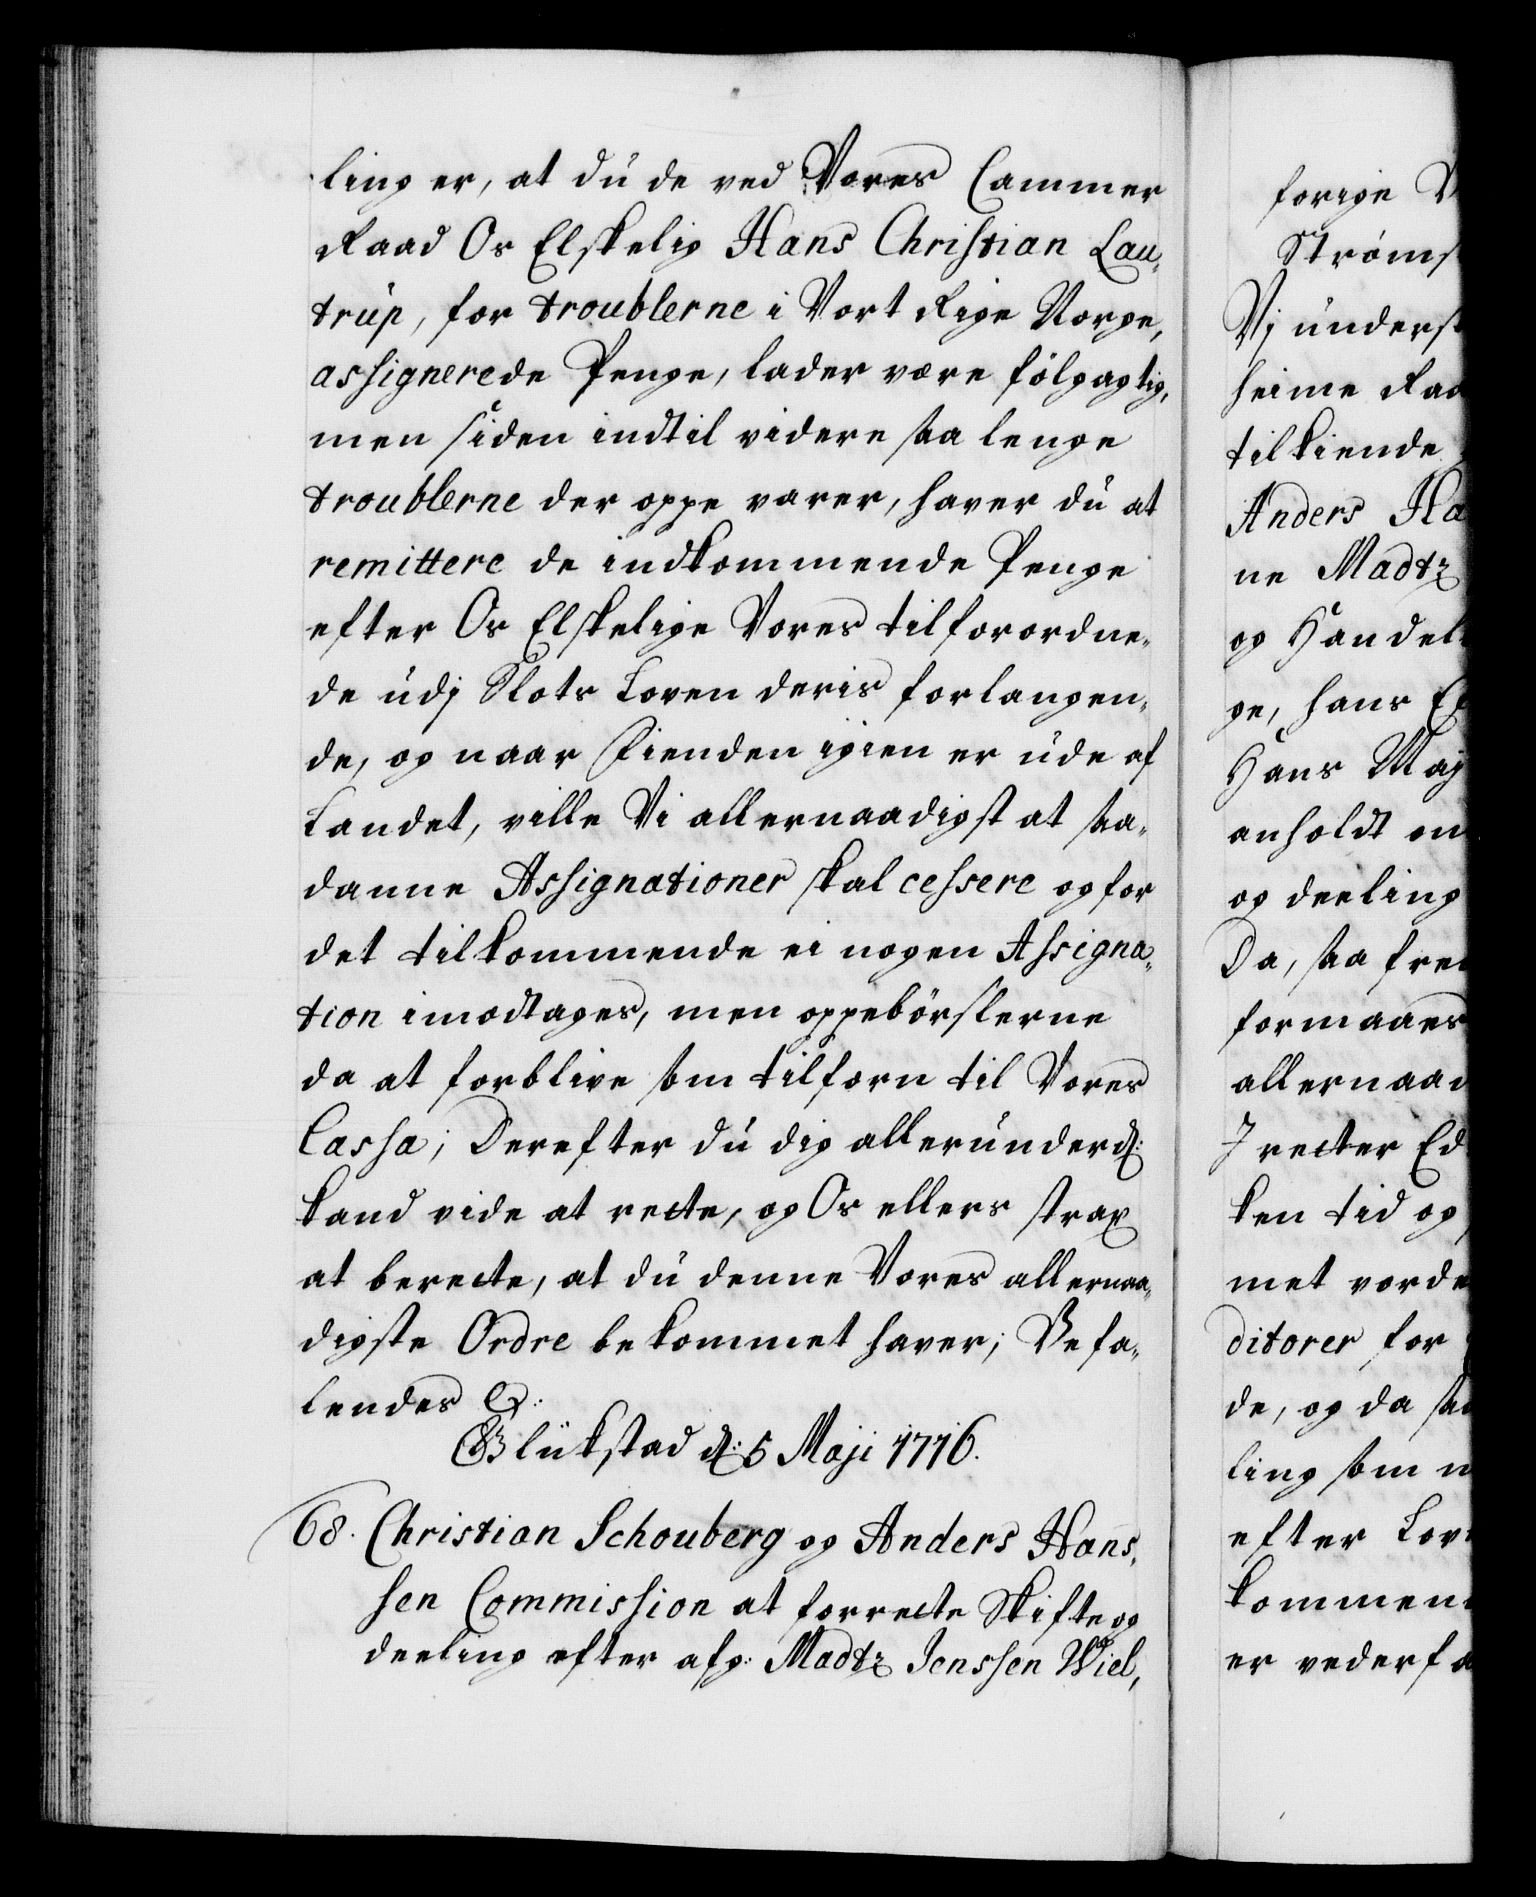 ling er, at du de ved Vores Cammer
Raad Os Elskelig Hans Christian Lau„
trup, for troublerne i Vort Rige Norge,
assignerede Penge, lader være fölgagtig,
men siden indtil videre saa lenge
troublerne der oppe varer, haver du at
remittere de indkommende Penge
efter Os Elskelige Vores tilforordne„
de udj Slots Loven deris forlangen„
de, og naar Fienden igien er ude af
Landet, ville Vi allernaadigst at saa„
danne Assignationer skal cessere og for
det tilkommende ei nogen Assigna„
tion imodtages, men oppebörslerne
da at forblive som tilforn til Vores
Cassa; Derefter du dig allerunderd:
kand vide at recte, og Os ellers strax
at berecte, at du denne Vores allernaa„
digste Ordre bekommet haver; Befa„
lendes &:
Glükstad d: 5 Maji 1716.
68. Christian Schouberg og Anders Hans„
sen Commission at forrecte Skifte og
deeling efter afg: Madtz Jenssen Wiel,
forige V
Strøms
Vj underst
heime Raa
tilkiende
Anders Ha
ne Madtz
og Handel
ge, hans E
Hans Maj
anholdt om
og deeling
Da, saa frem
formaaes
allernaad
I recter Ed
ken tid og
met vorde
ditorer for
de, og da saa
ling som m
efter Lov
kommen
er vederfa